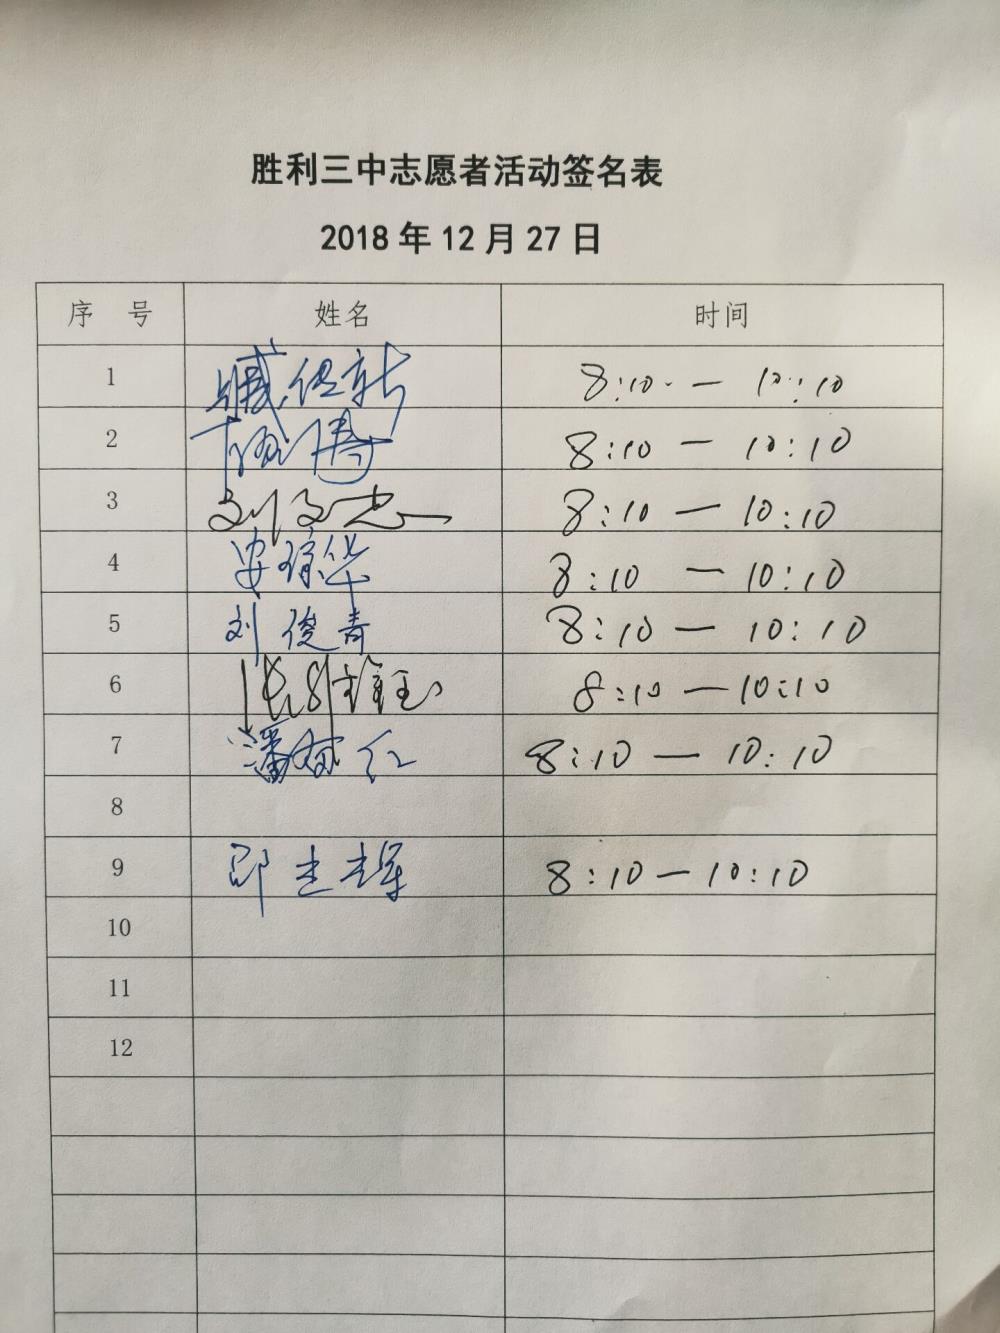 胜利三中志愿者活动签名表
2018年12月27日
序 号 姓名 时间
1 8:10 — 10:10
2 8:10 — 10:10
3 刘文忠 8:10 — 10:10
4 安琼华 8:10 — 10:10
5 刘俊青 8:10 — 10:10
6 8:10 — 10:10
7 潘 红 8:10 — 10:10
8
9 8:10 — 10:10
10
11
12